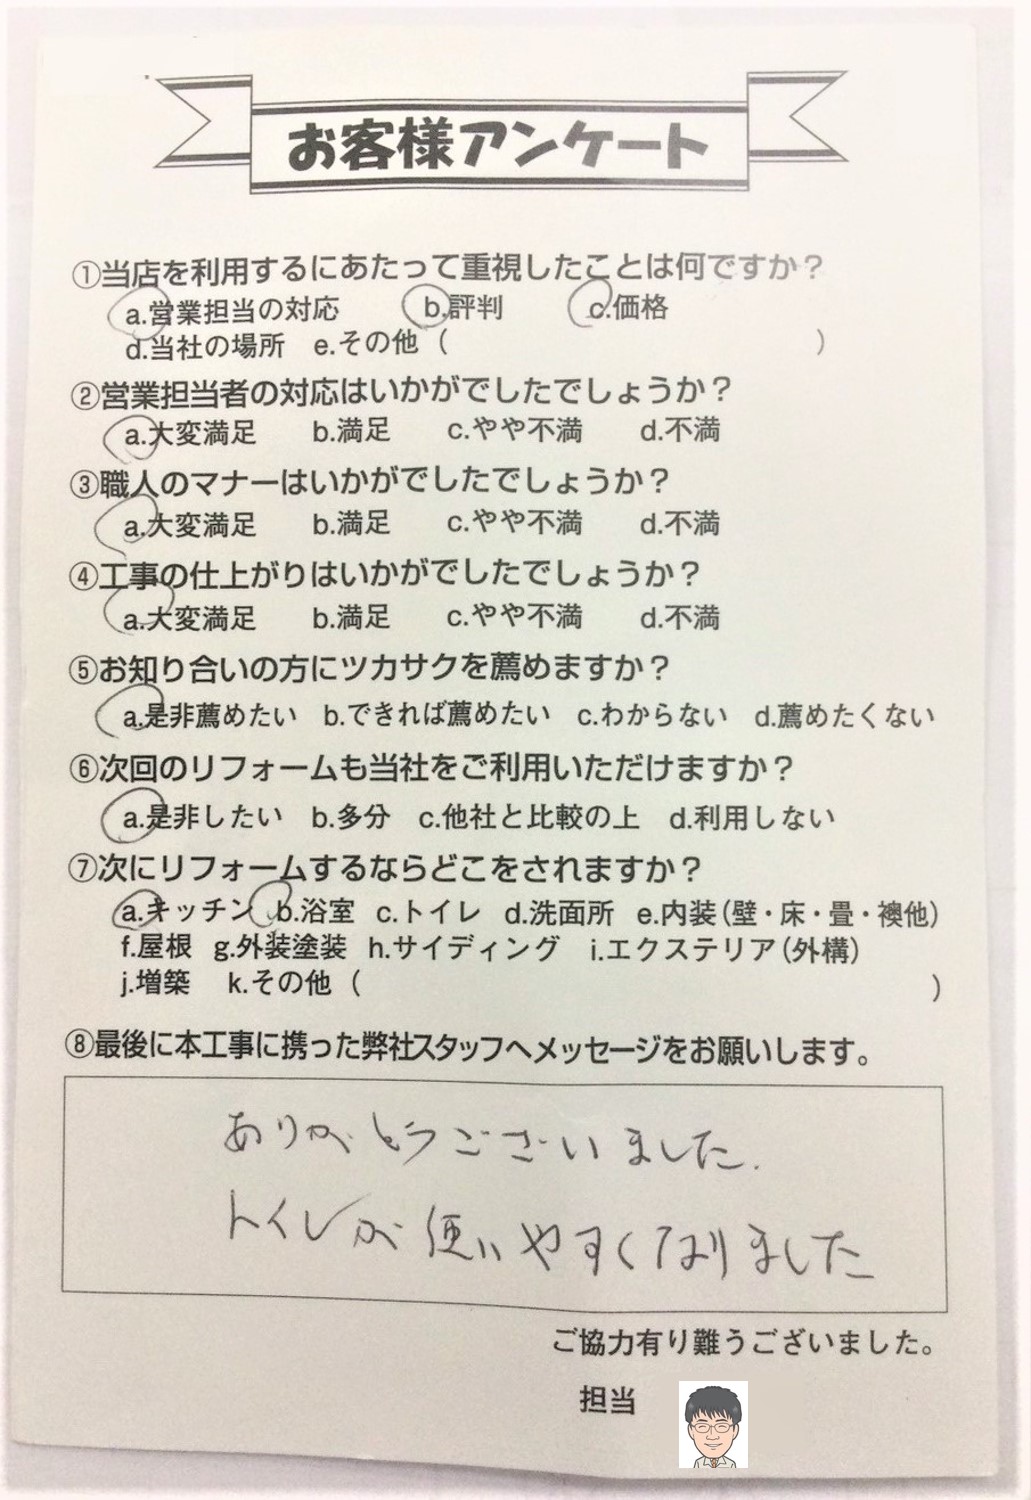 お客様アンケート
①当店を利用するにあたって重視したことは何ですか？
a.営業担当の対応 b.評判 c.価格
d.当社の場所 e.その他（ ）
②営業担当者の対応はいかがでしたでしょうか？
a.大変満足 b.満足 c.やや不満 d.不満
③職人のマナーはいかがでしたでしょうか？
a.大変満足 b.満足 c.やや不満 d.不満
④工事の仕上がりはいかがでしたでしょうか？
a.大変満足 b.満足 c.やや不満 d.不満
⑤お知り合いの方にツカサクを薦めますか？
a.是非薦めたい b.できれば薦めたい c.わからない d.薦めたくない
⑥次回のリフォームも当社をご利用いただけますか？
a.是非したい b.多分 c.他社と比較の上 d.利用しない
⑦次にリフォームするならどこをされますか？
a.キッチン b.浴室 c.トイレ d.洗面所 e.内装（壁・床・畳・襖他）
f.屋根 g.外装塗装 h.サイディング i.エクステリア（外構）
j.増築 k.その他（ ）
⑧最後に本工事に携った弊社スタッフへメッセージをお願いします。
ありがとうございました.
トイレが使いやすくなりました
ご協力有り難うございました。
担当